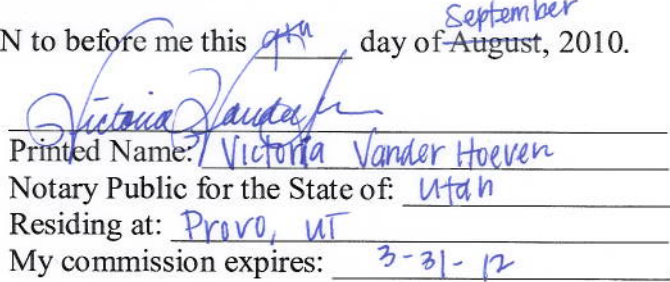 September
N to before me this 9th day of August, 2010.
Victoria Vander H
Printed Name: Victoria Vander Hoeven
Notary Public for the State of: Utah
Residing at: Provo, UT
My commission expires: 3-31-12